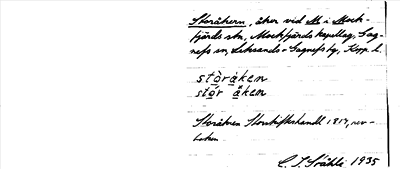 Storåkern, åker vid M i Mock-
fjärds sn, Mockfjärds kapellag, Gag-
nefs sn, Leksands o Gagnefs tg, Kopp. l.
stòråken
stór åken
Storåkren Storskifteshandl 1819, rev-
boken
C. I. Ståhle 1935